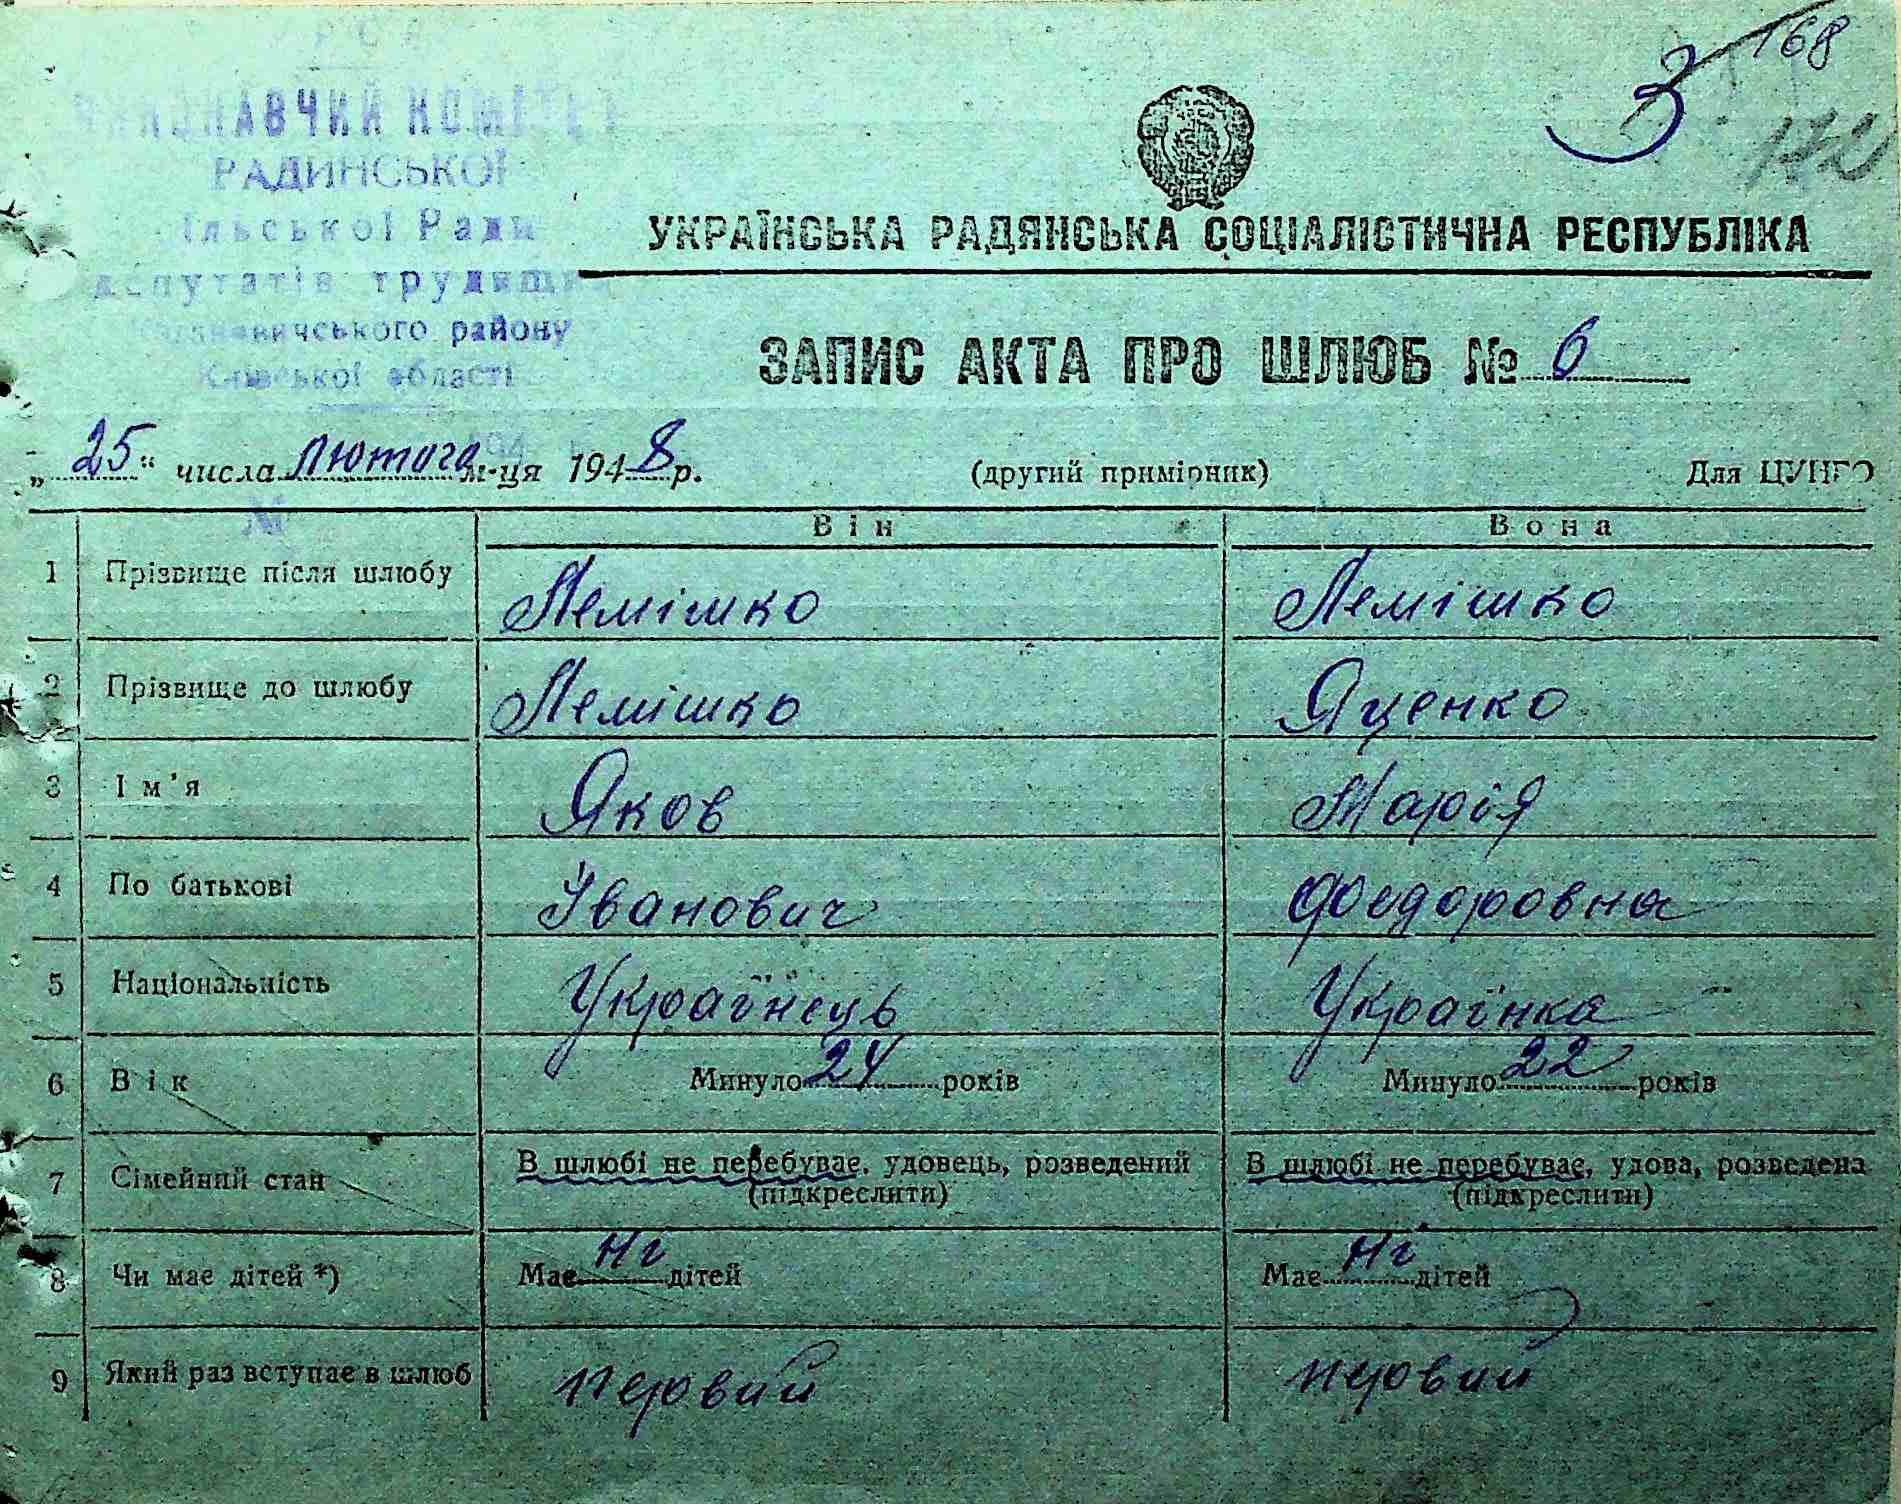 УРСР
ВИКОНАВЧИЙ КОМІТЕТ
РАДИНСЬКОЇ
ільської Ради
депутатів трудящих
району
Київської області
194
№
168
3
172
УКРАЇНСЬКА РАДЯНСЬКА СОЦІАЛІСТИЧНА РЕСПУБЛІКА
ЗАПИС АКТА ПРО ШЛЮБ № 6
„25“ числа лютого м-ця 1948 р. (другий примірник) Для ЦУНГО
Він Вона
1 Прізвище після шлюбу Лемішко Лемішко
2 Прізвище до шлюбу Лемішко Яценко
3 Ім'я Яков Марія
4 По батькові Іванович Феодоровна
5 Національність Українець Українка
6 Вік Минуло 24 років Минуло 22 років
7 Сімейний стан В шлюбі не перебуває, удовець, розведений В шлюбі не перебуває, удова, розведена
(підкреслити) (підкреслити)
8 Чи має дітей *) Має ні дітей Має ні дітей
9 Який раз вступає в шлюб первий первий